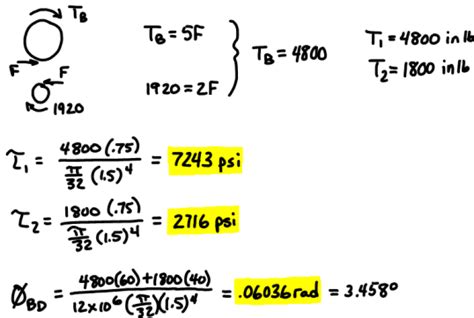 T_B
F
F
1920
T_B = 5F
1920 = 2F
T_B = 4800
T_1 = 4800 in lb
T_2 = 1800 in lb
τ_1 = 4800 (.75) / π/32 (1.5)^4 = 7243 psi
τ_2 = 1800 (.75) / π/32 (1.5)^4 = 2716 psi
Ø_BD = 4800(60)+1800(40) / 12x10^6 (π/32)(1.5)^4 = .06036 rad = 3.458°